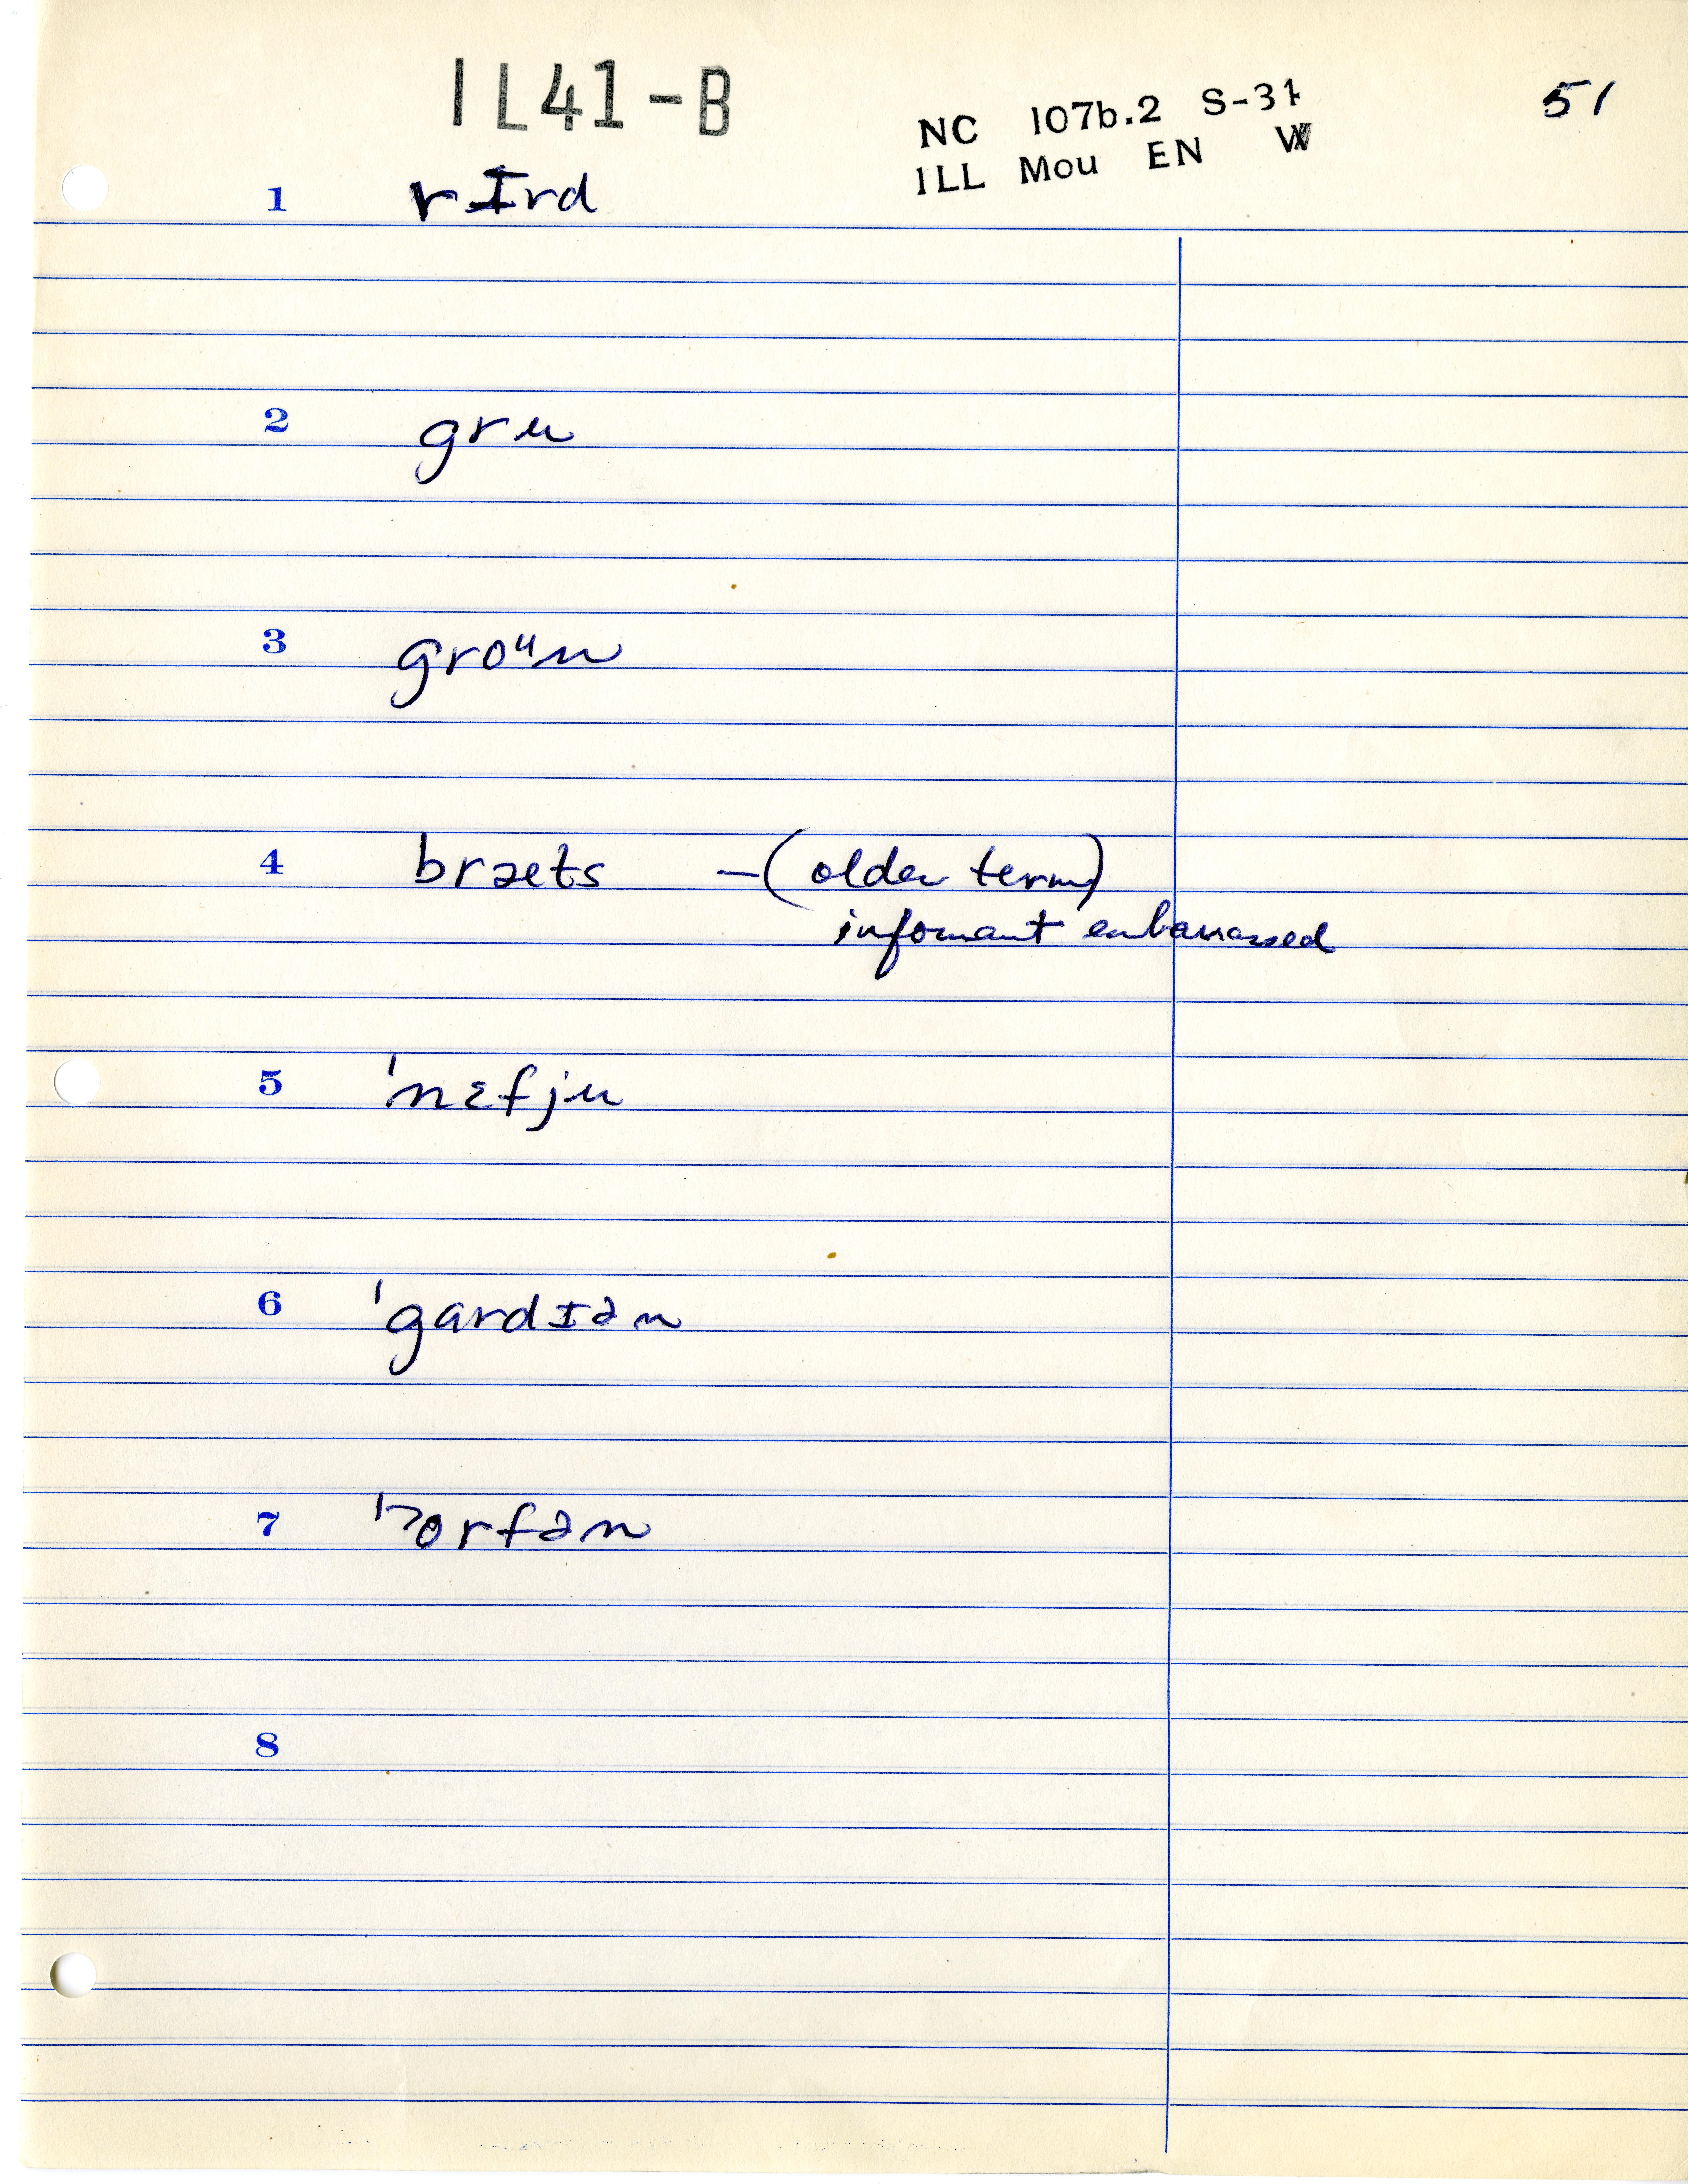 IL41-B
NC 107b.2 S-31 51
ILL Mou EN W
1 rɪrd
2 gru
3 groᵘn
4 bræts – (older term)
infomant embarrassed
5 ˈnɛfju
6 ˈgardɪən
7 ˈʔorfən
8